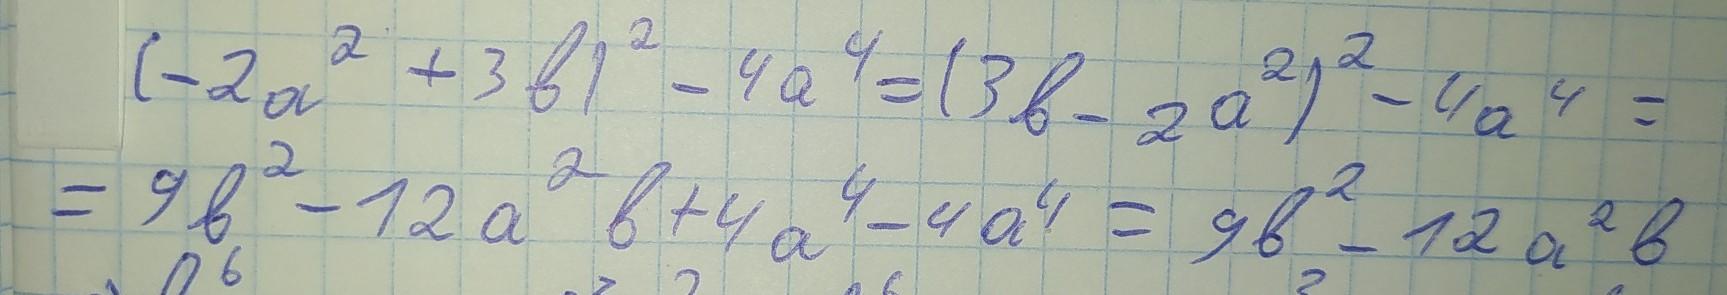 (-2a² + 3b)² - 4a⁴ = (3b - 2a²)² - 4a⁴ =
= 9b² - 12a²b + 4a⁴ - 4a⁴ = 9b² - 12a²b